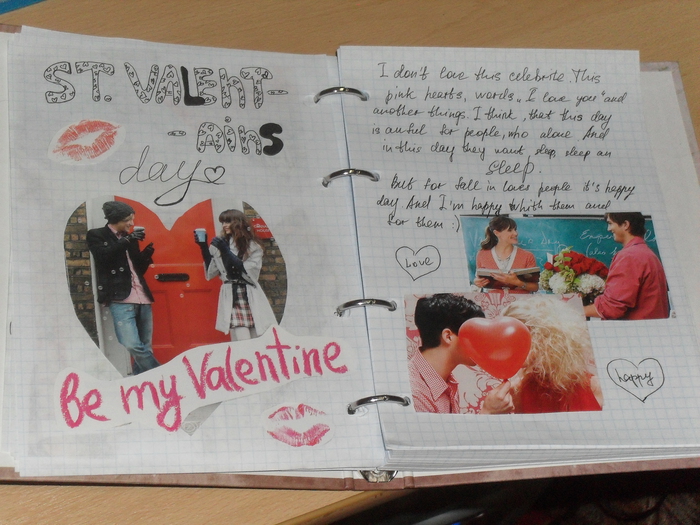 ST. VALENT-
- AiNS
day
Be my Valentine
I don't love this celebrite. This
pink hearts, words, „I love you" and
another things. I think, that this day
is awful for people, who alone. And
in this day they want sleep, sleep an
sleep.
But for fall in loves people it's happy
day. And I'm happy whith them and
for them :)
Love
happy